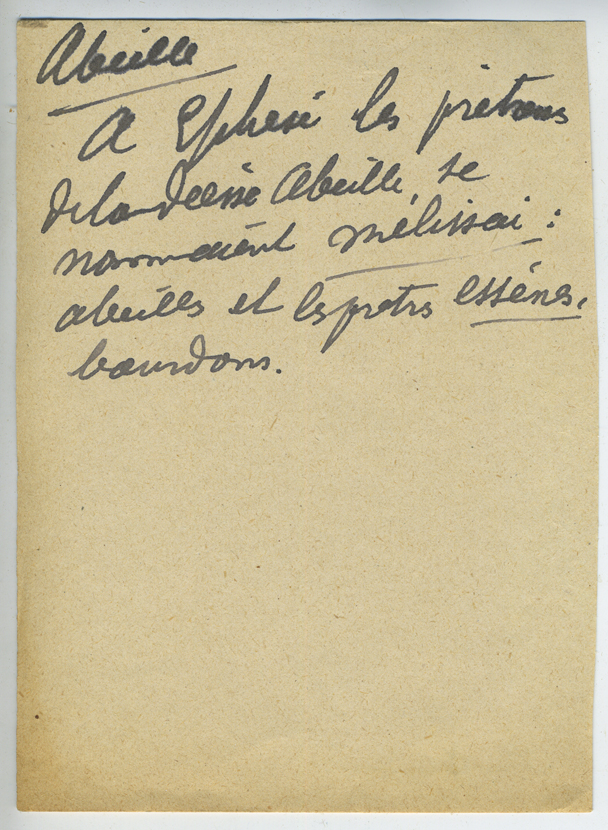 Abeille
A Ephese les prêtresses
de la déesse Abeille, se
nommaient mélissai :
abeilles et les pretres essénes,
bourdons.